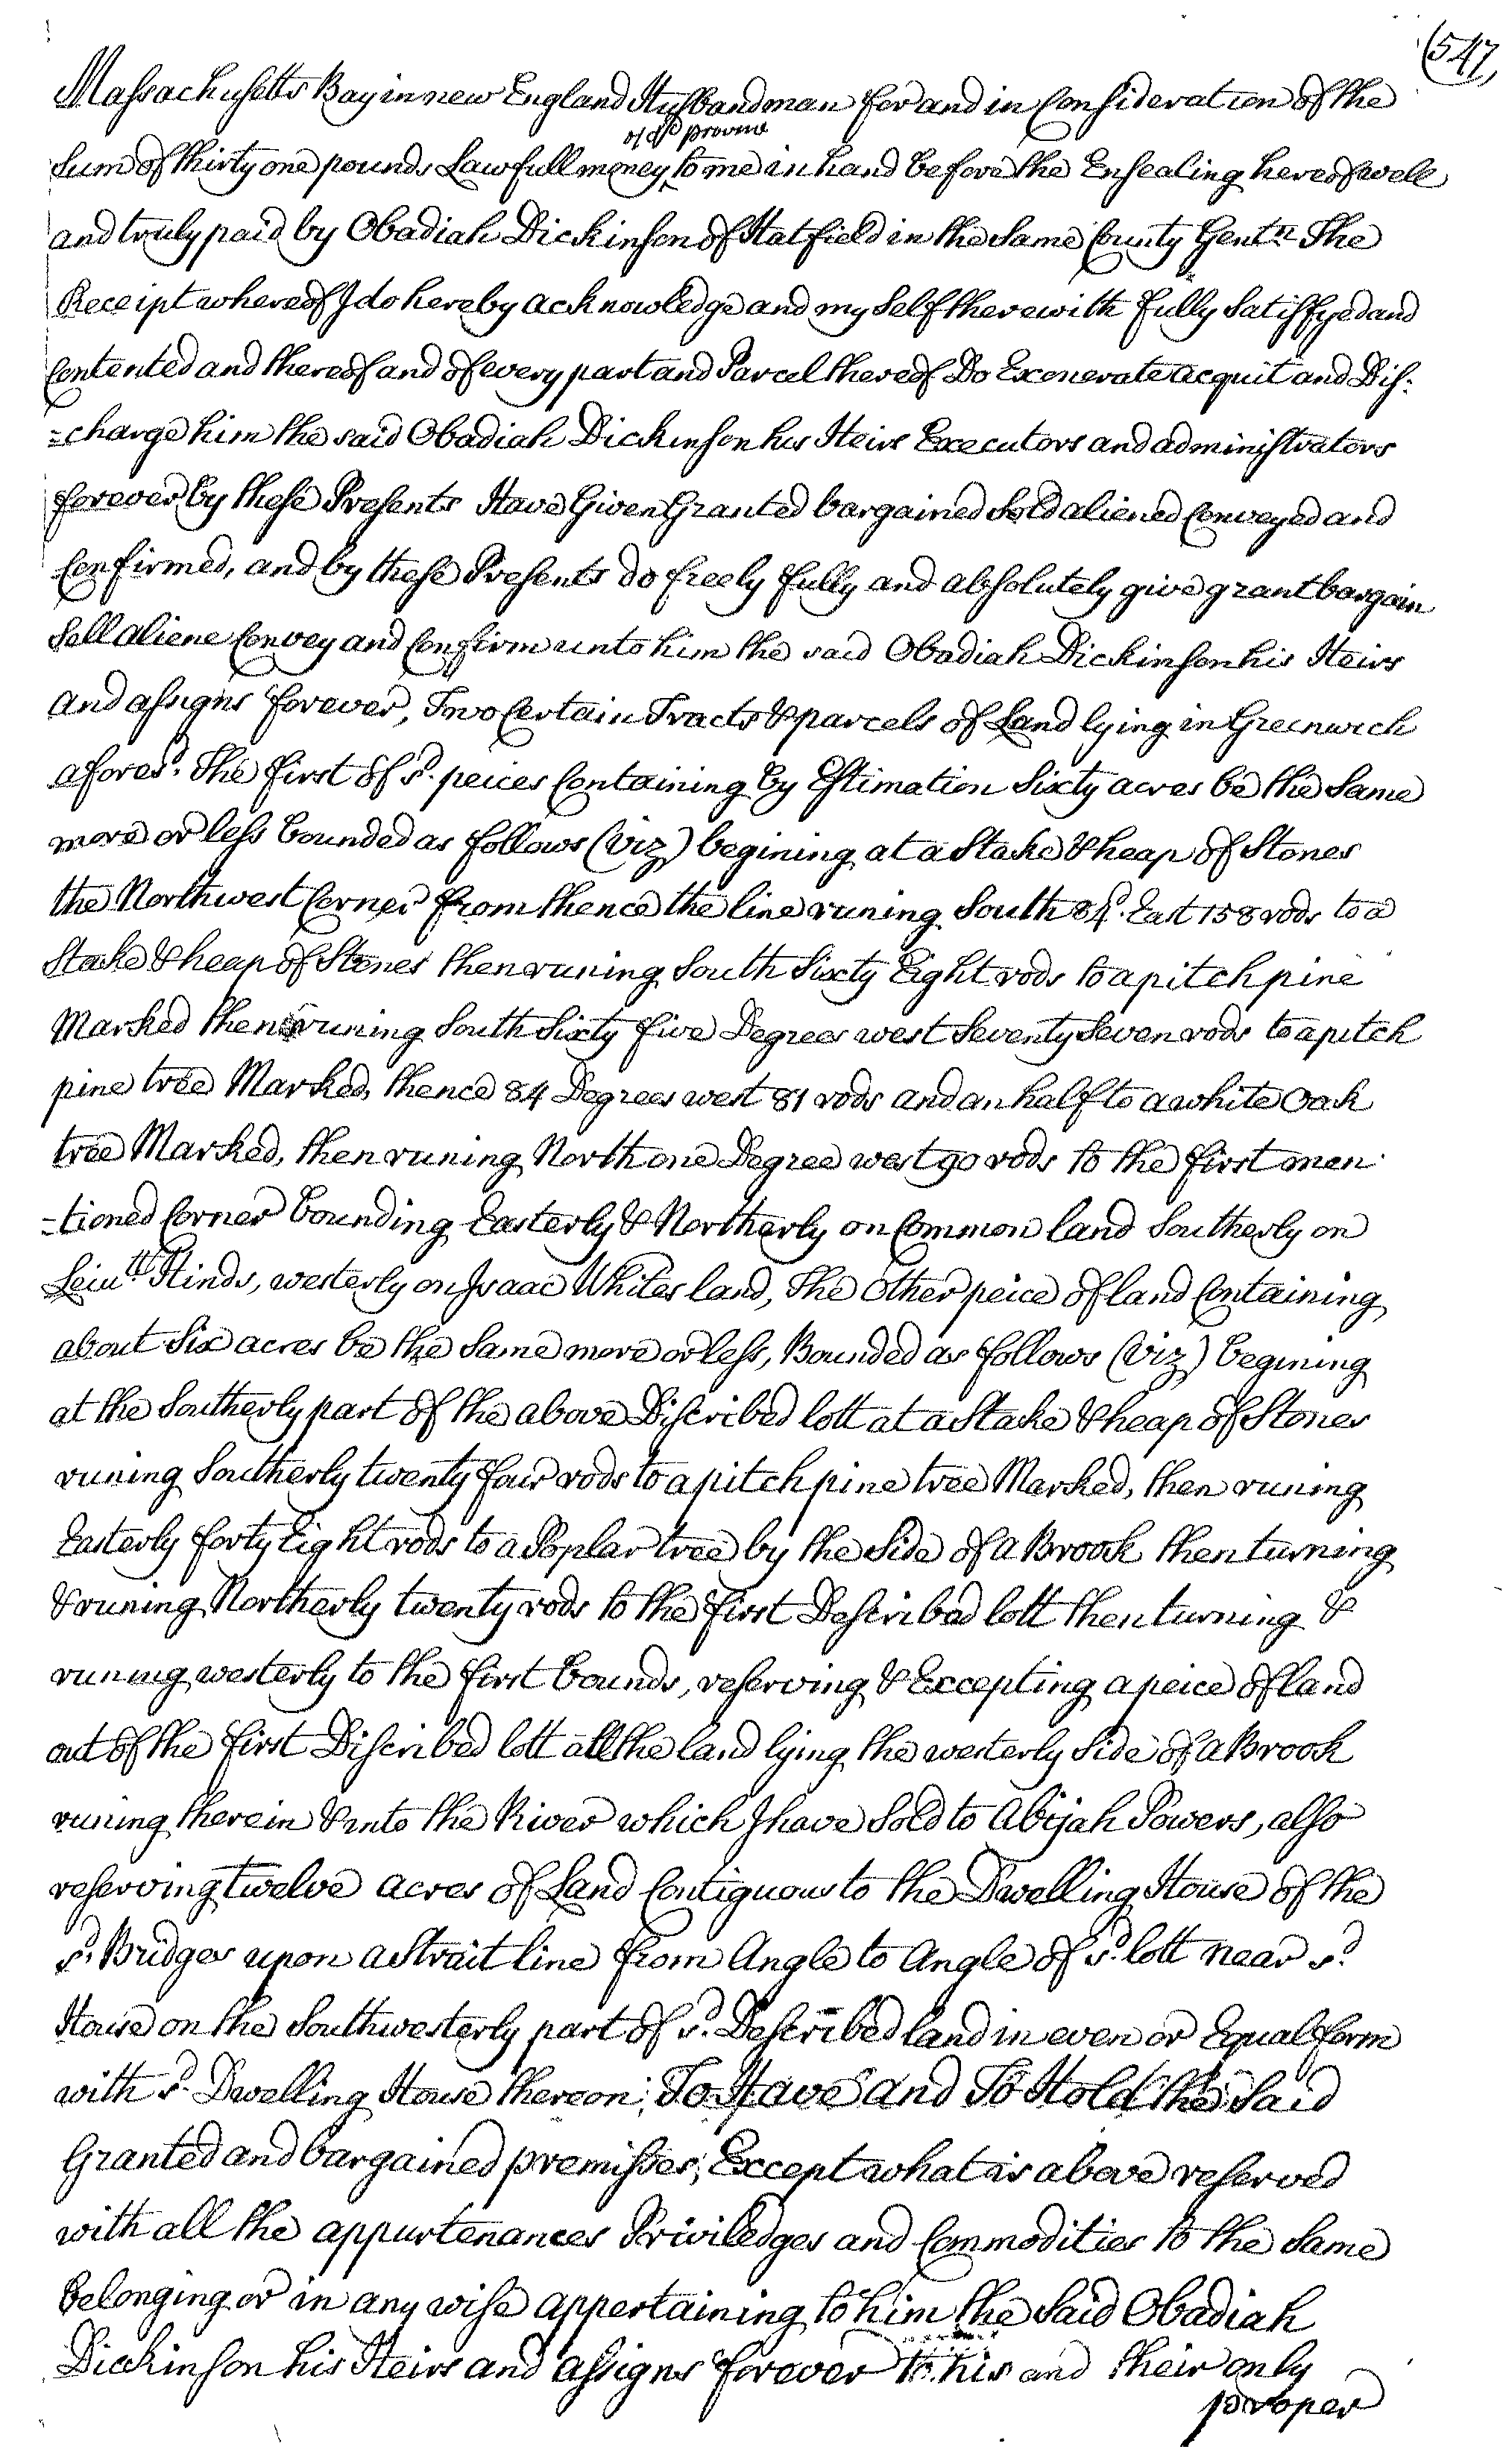 (547)
Massachusetts Bay in new England Husbandman for and in Consideration of the
of sd provinc
Sum of thirty one pounds Lawfull money to me in hand before the Ensealing hereof well
and truly paid by Obadiah Dickinson of Hatfield in the Same County Gentn. The
Receipt whereof I do hereby acknowledge and my Self therewith fully Satisfyed and
Contented and thereof and of every part and Parcel thereof Do Exonerate acquit and Dis:
=charge him the said Obadiah Dickinson his Heirs Executors and administrators
forever by these Presents Have Given Granted bargained Sold aliened Conveyed and
Confirmed, and by these Presents do freely fully and absolutely give grant bargain
Sell aliene Convey and Confirm unto him the said Obadiah Dickinson his Heirs
and assigns forever, Two Certain Tracts & parcels of Land lying in Greenwich
aforesd. The first of sd. peices Containing by Estimation Sixty acres be the Same
more or less bounded as follows (viz) begining at a Stake & heap of Stones
the Northwest Corner from thence the line runing South 84d. East 158 rods to a
Stake & heap of Stones then runing South Sixty Eight rods to a pitch pine
Marked then runing South Sixty five Degrees west Seventy Seven rods to a pitch
pine tree Marked, thence 84 Degrees west 81 rods and an half to a white Oak
tree Marked, then runing North one Degree west 90 rods to the first men
=tioned Corner bounding Easterly & Northerly on Common land Southerly on
Leiutt. Hinds, westerly on Isaac Whites land, The Other peice of land Containing
about Six acres be the Same more or less, Bounded as follows (viz) begining
at the Southerly part of the above Discribed lott at a Stake & heap of Stones
runing Southerly twenty four rods to a pitch pine tree Marked, then runing
Easterly forty Eight rods to a Poplar tree by the Side of a Brook then turning
& runing Northerly twenty rods to the first Described lott then turning &
runing westerly to the first bounds, reserving & Excepting a peice of land
out of the first Discribed lott all the land lying the westerly Side of a Brook
runing therein & into the River which I have Sold to Abijah Powers, also
reserving twelve acres of Land Contiguous to the Dwelling House of the
sd. Bridges upon a Strait line from Angle to Angle of sd. lott near sd.
House on the Southwesterly part of sd. Described land in even or Equal form
with sd. Dwelling House thereon; To Have and To Hold the Said
Granted and bargained premisses, Except what is above reserved
with all the appurtenances Priviledges and Commodities to the Same
belonging or in any wise appertaining to him the Said Obadiah
Dickinson his Heirs and assigns forever to his and their only
proper